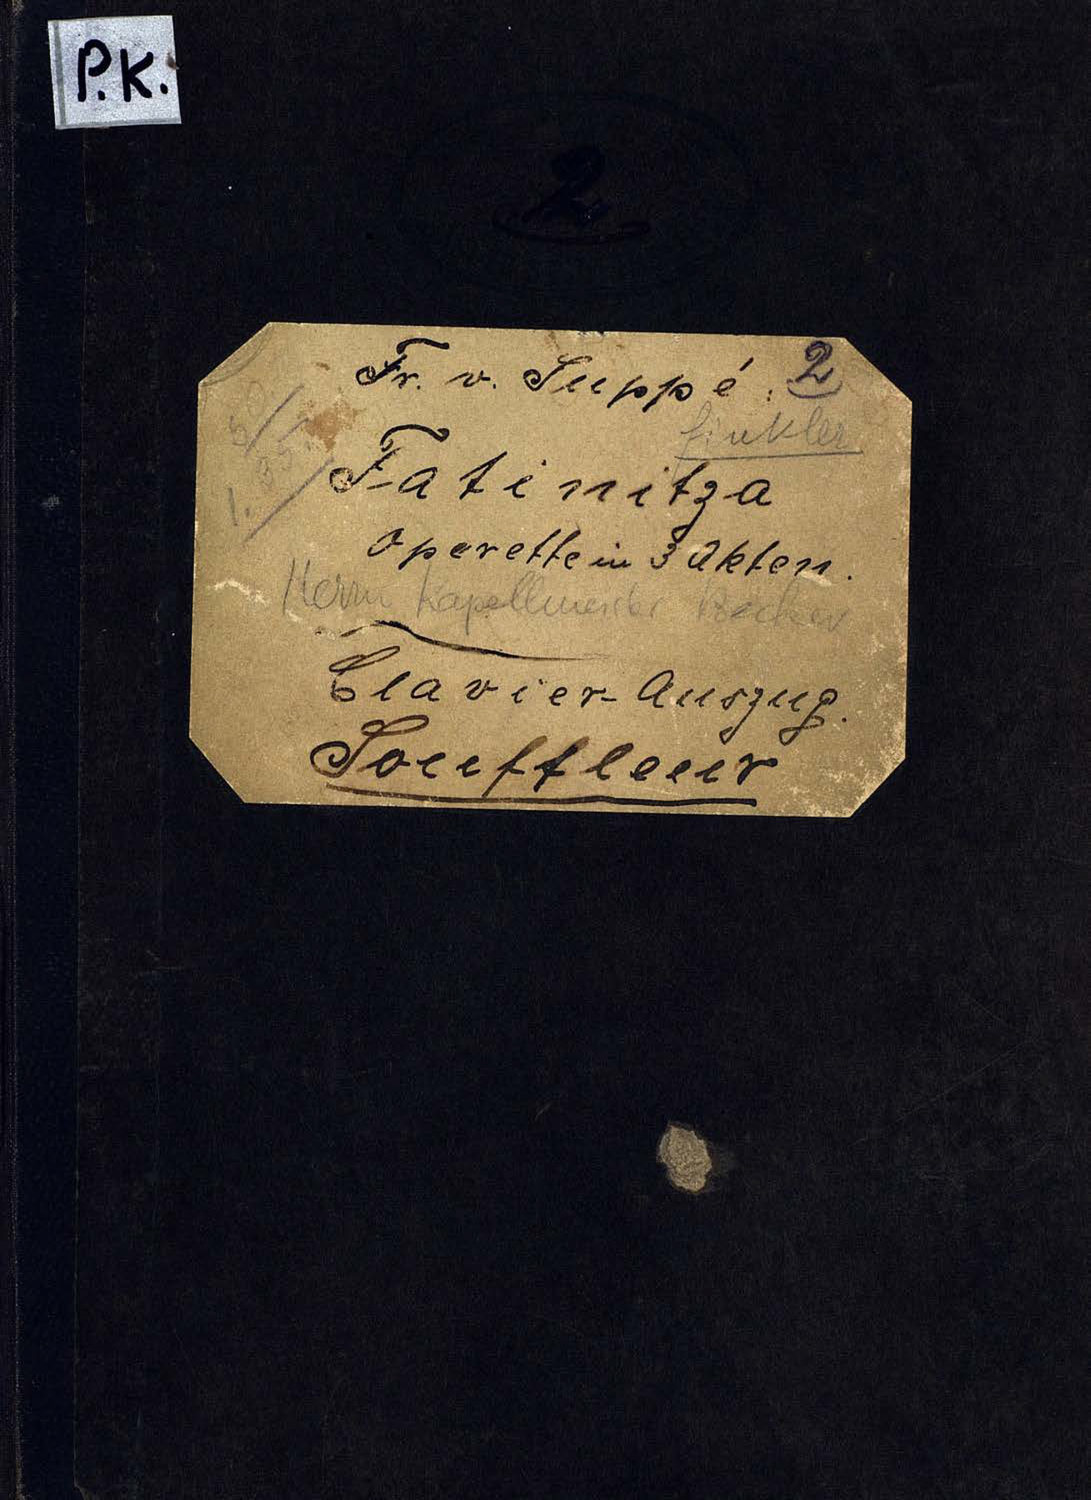 P.K.
2
Fr. v. Suppé. 2
Finkler
Fatinitza
Operette in 3 Akten.
Herrn Kapellmeister Becker
Clavier-Auszug.
Souffleur